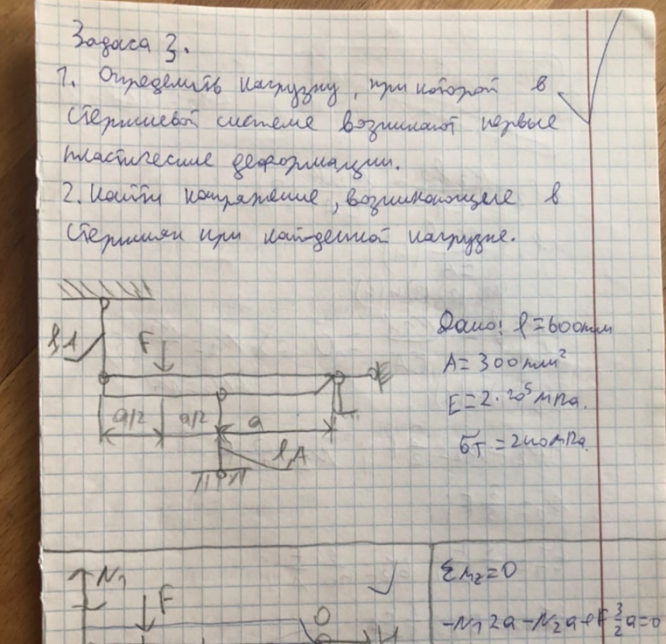 Задача 3.
1. Определить нагрузку, при которой в
стержневой системе возникают первые
пластические деформации.
2. Найти напряжение, возникающее в
стержнях при найденной нагрузке.
l,A
F
a/2 a/2 a
l,A
Дано: l=600мм
A=300мм²
E=2·10⁵МПа.
σт=240МПа.
N₁
F
Σmz=0
-N₁2a-N₂a+F3/2a=0